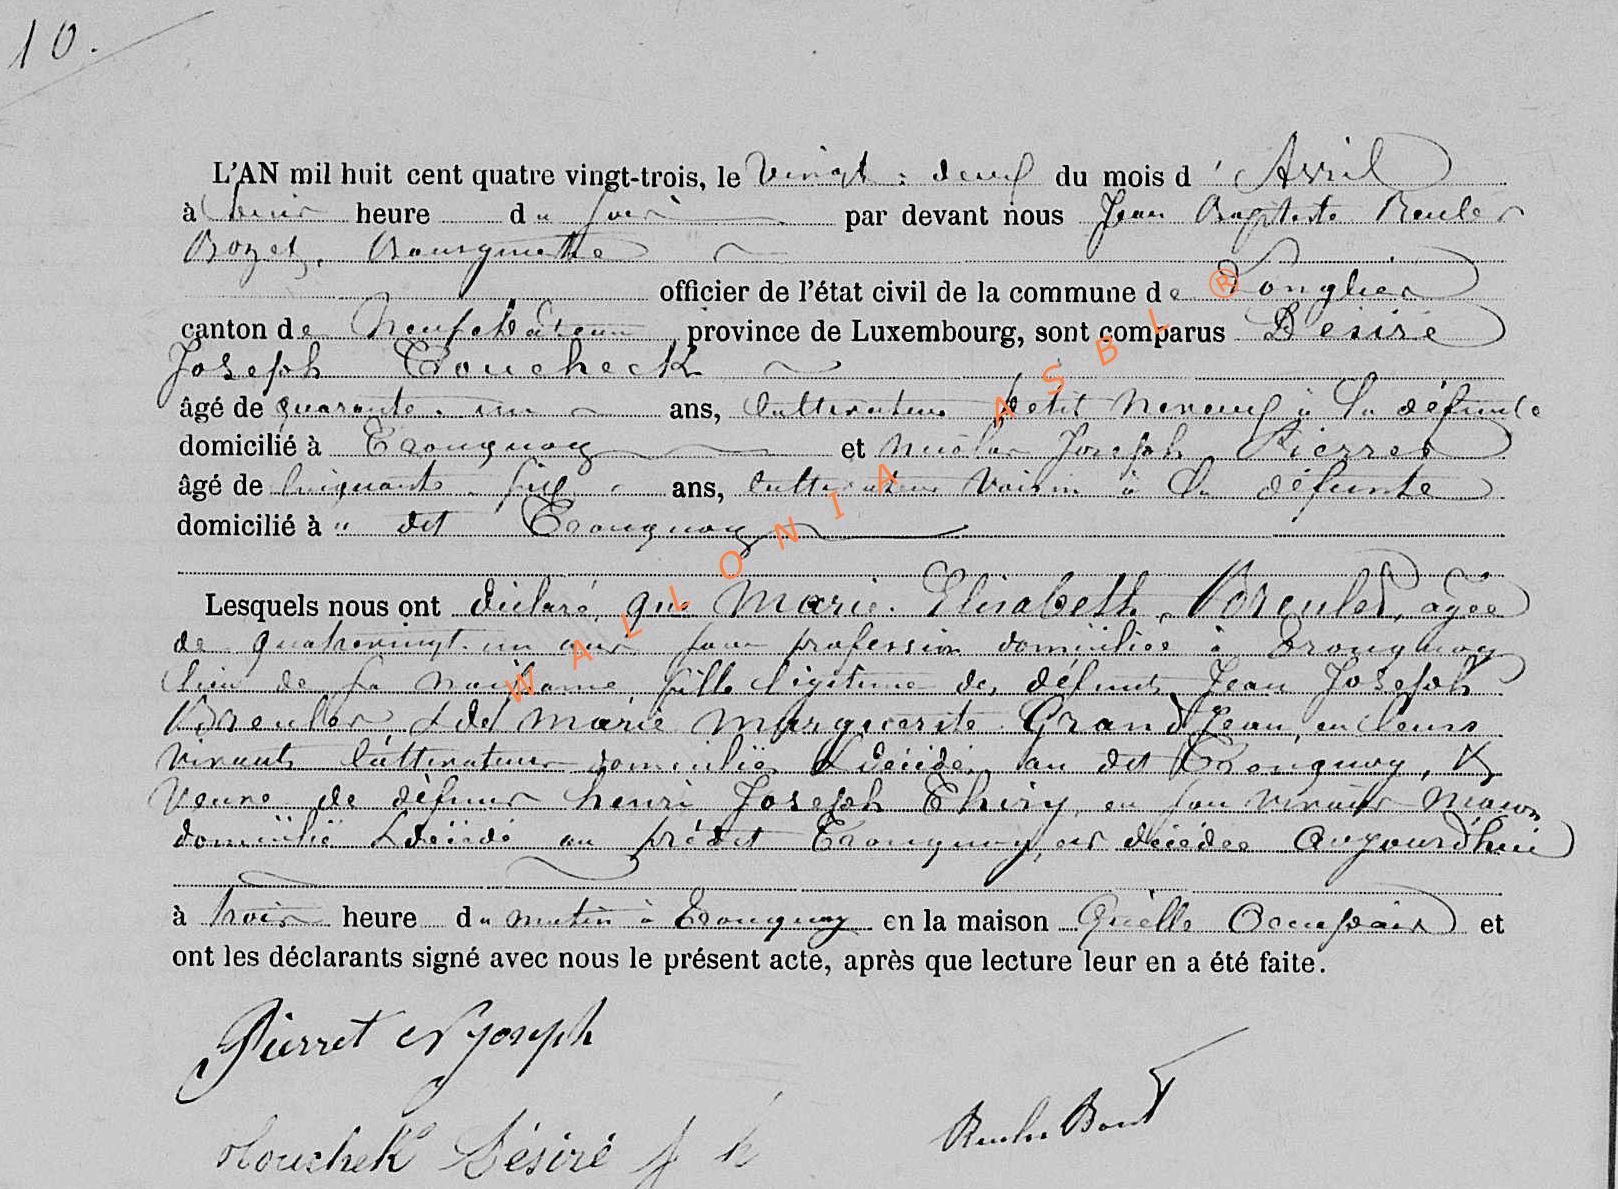 10.
L'AN mil huit cent quatre vingt-trois, le vingt-deux du mois d'Avril
à heure du soir par devant nous Jean Baptiste Reuler
Bozet, Bourgmestre
officier de l'état civil de la commune de Longlier
canton de Neufchâteau province de Luxembourg, sont comparus Désiré
Joseph Troucheck
âgé de quarante-un ans, cultivateur petit neveux à la défunte
domicilié à Tronquoy et Nicolas Joseph Pierret
âgé de cinquante-six ans, cultivateur voisin à la défunte
domicilié à u dit Tronquoy
Lesquels nous ont déclaré, que Marie-Elisabeth agée
de quatrevingt-un ans sans profession domiciliée à Tronquoy
lieu de sa naissance, fille légitime des défunts Jean Joseph
& de Marie Marguerite Grandjean, en leurs
vivants cultivateurs domiciliés & décédés au dit Tronquoy, &
veuve de défunt henri Joseph Thiry, en son vivant Maçon
domicilié & décédé au prédit Tronquoy, est décédée aujourd'hui
à trois heure du matin à Tronquoy en la maison Qu'elle Occupait et
ont les déclarants signé avec nous le présent acte, après que lecture leur en a été faite.
Pierret N Joseph
Désiré
WALLONIA ASBL ®